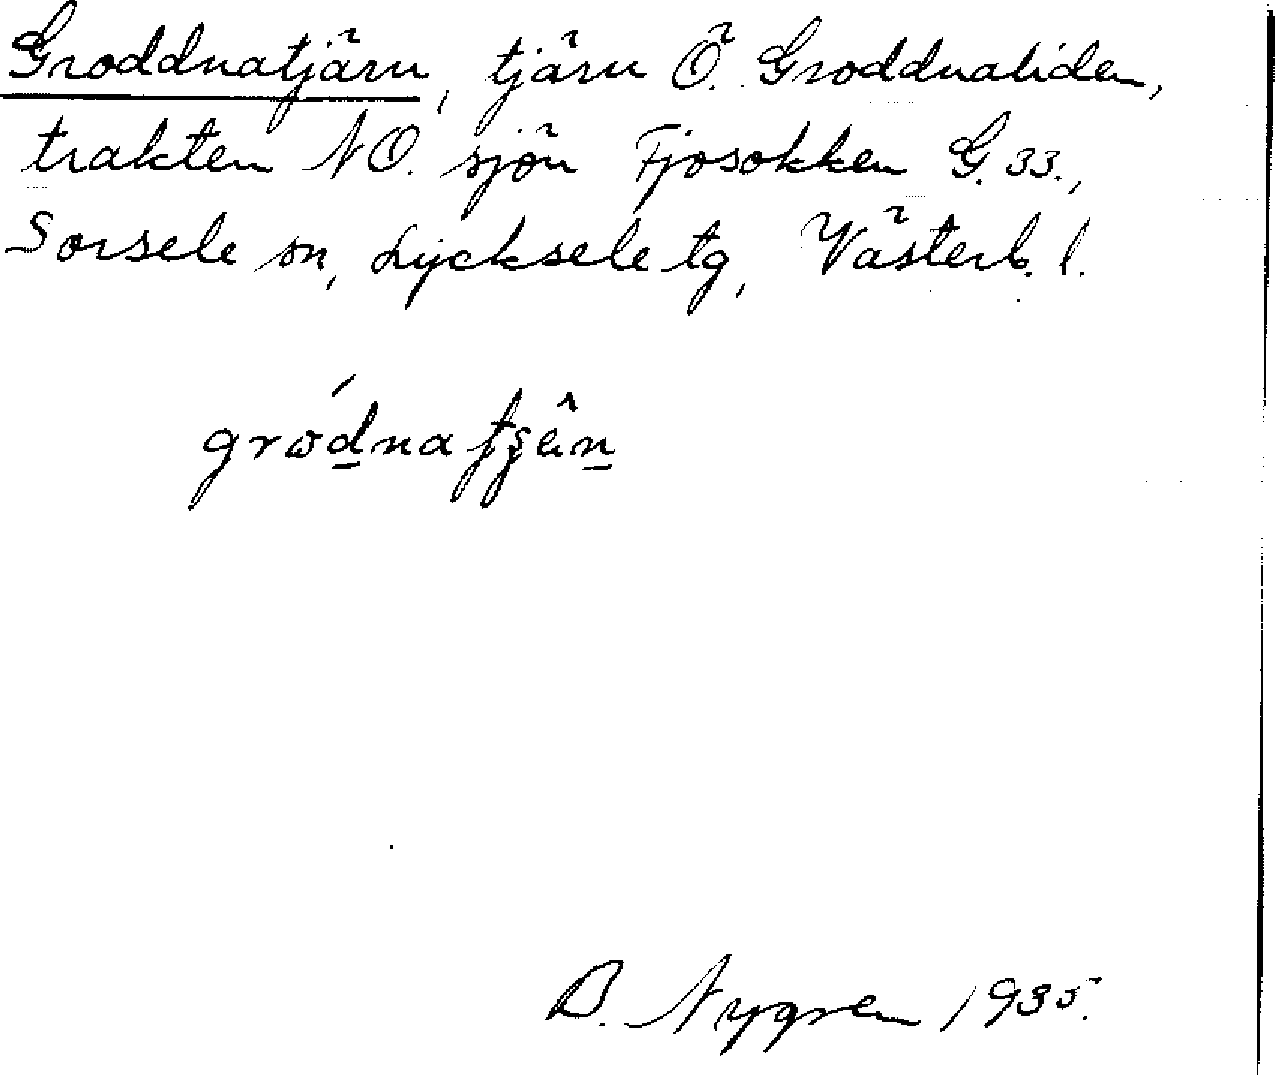 Groddnatjärn, tjärn Ö. Groddnaliden,
trakten NO. sjön Fjosokken G. 33.,
Sorsele sn, Lycksele tg, Västerb. l.
B. Nygren 1935.